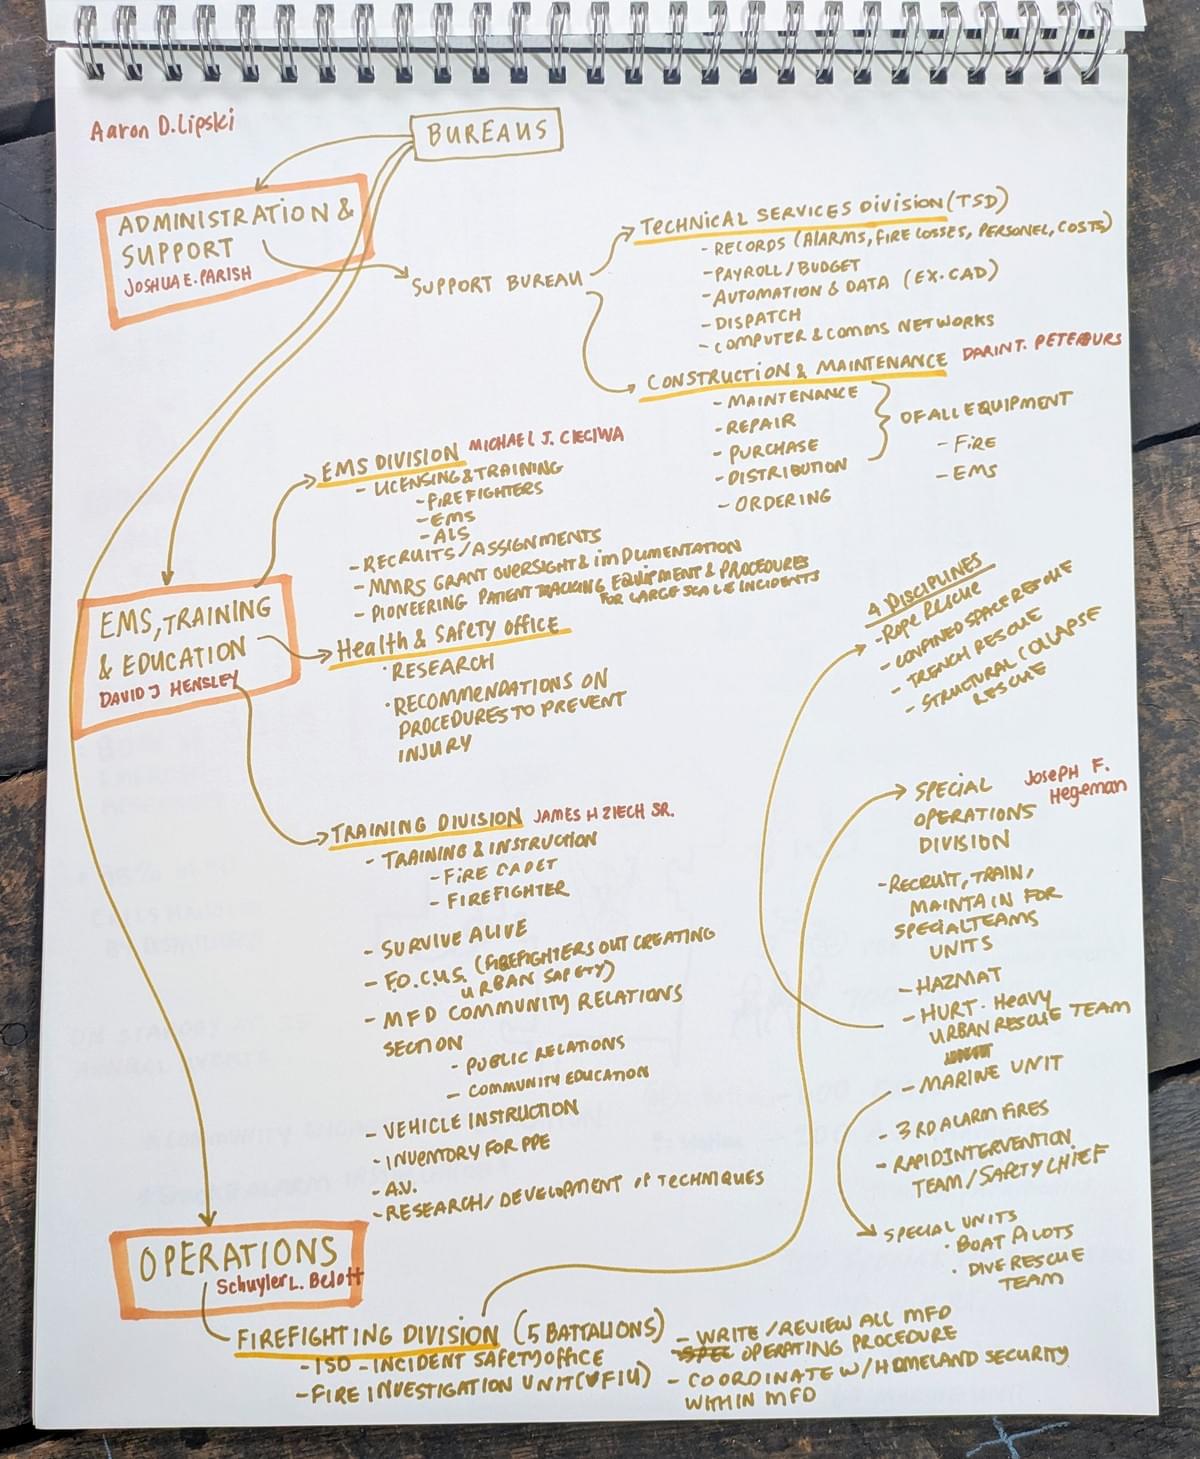 Aaron D. Lipski
BUREAUS
ADMINISTRATION &
SUPPORT
JOSHUA E. PARISH
SUPPORT BUREAU
TECHNICAL SERVICES DIVISION (TSD)
- RECORDS (ALARMS, FIRE LOSSES, PERSONEL, COSTS)
- PAYROLL / BUDGET
- AUTOMATION & DATA (EX. CAD)
- DISPATCH
- COMPUTER & COMMS NETWORKS
CONSTRUCTION & MAINTENANCE DARIN T. PETERBURS
- MAINTENANCE
- REPAIR
- PURCHASE
- DISTRIBUTION
- ORDERING
OF ALL EQUIPMENT
- FIRE
- EMS
EMS DIVISION MICHAEL J. CIECIWA
- LICENSING & TRAINING
- FIREFIGHTERS
- EMS
- ALS
- RECRUITS / ASSIGNMENTS
- MMRS GRANT OVERSIGHT & IMPLUMENTATION
- PIONEERING PATIENT TRACKING EQUIPMENT & PROCEDURES
FOR LARGE SCALE INCIDENTS
EMS, TRAINING
& EDUCATION
DAVID J HENSLEY
Health & Safety OFFICE
· RESEARCH
· RECOMMENDATIONS ON
PROCEDURES TO PREVENT
INJURY
4 DISCIPLINES
- ROPE RESCUE
- CONFINED SPACE RESCUE
- TRENCH RESCUE
- STRUCTURAL COLLAPSE
RESCUE
TRAINING DIVISION JAMES H ZIECH SR.
- TRAINING & INSTRUCTION
- FIRE CADET
- FIREFIGHTER
- SURVIVE ALIVE
- F.O.C.U.S. (FIREFIGHTERS OUT CREATING
URBAN SAFETY)
- MFD COMMUNITY RELATIONS
SECTION
- PUBLIC RELATIONS
- COMMUNITY EDUCATION
- VEHICLE INSTRUCTION
- INVENTORY FOR PPE
- A.V.
- RESEARCH / DEVELOPMENT OF TECHNIQUES
SPECIAL
OPERATIONS
DIVISION
Joseph F.
Hegeman
- RECRUIT, TRAIN,
MAINTAIN FOR
SPECIAL TEAMS
UNITS
- HAZMAT
- HURT - Heavy
URBAN RESCUE TEAM
- MARINE UNIT
- 3RD ALARM FIRES
- RAPID INTERVENTION
TEAM / SAFETY CHIEF
SPECIAL UNITS
· BOAT PILOTS
· DIVE RESCUE
TEAM
OPERATIONS
Schuyler L. Belott
FIREFIGHTING DIVISION (5 BATTALIONS)
- ISO - INCIDENT SAFETY OFFICE
- FIRE INVESTIGATION UNIT
- WRITE / REVIEW ALL MFD
OPERATING PROCEDURE
- COORDINATE W/ HOMELAND SECURITY
WITHIN MFD